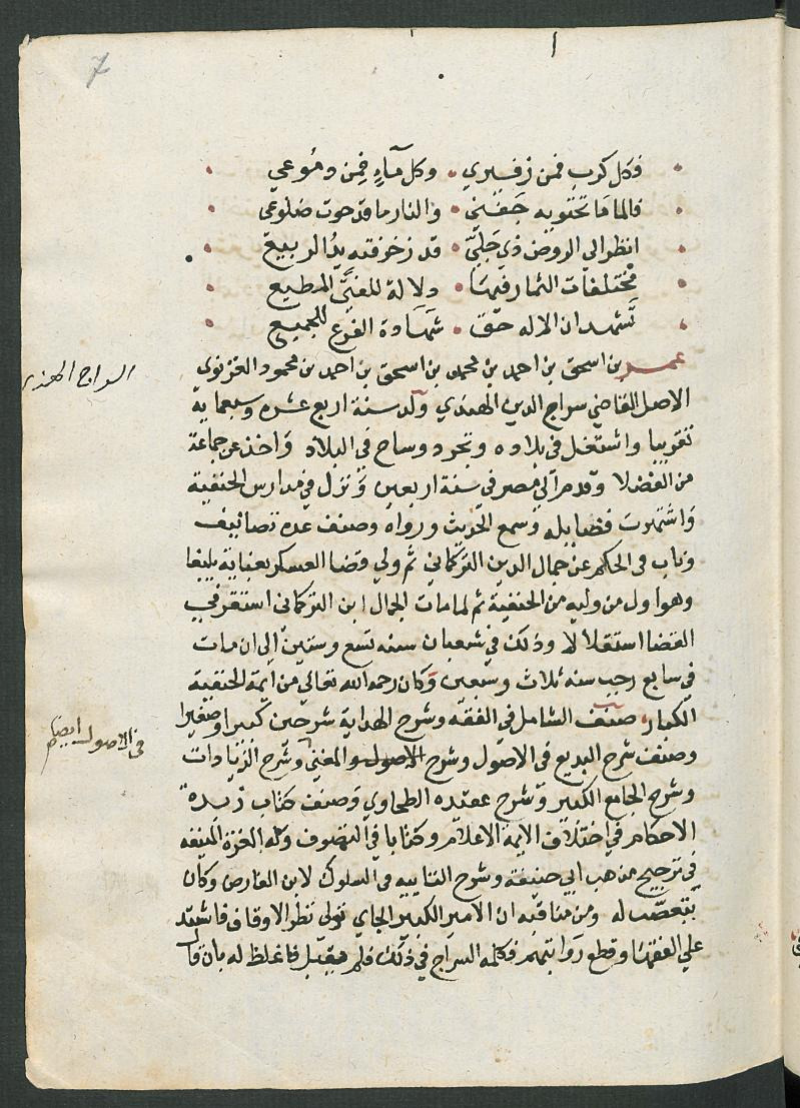 7
فكل كرب فمن زفيري . وكل مآءٍ فمن دموعي
فالما ما تحتويه جفني . والنار ما قد حوت ضلوعي
انظر الى الروض ذي جلىّ . قد زخرفته يدُ الربيع
مختلفات الثمار فيها . دلالة للغبيّ المطيع
تشهد ان الاله حق . شهادة الفرع للجميع
عمر بن اسحق بن احمد بن محمد بن اسحق بن احمد بن محمود الغزنوي
السراج الهندي
الاصل القاضي سراج الدين الهندي ولد سنة اربع عشره وسبعماية
تقريبا واشتغل في بلاده وتجرد وساح في البلاد واخذ عن جماعة
من الفضلا وقدم الى مصر في سنة اربعين ونزل في مدارس الحنفية
واشتهرت فضايله وسمع الحديث ورواه وصنف عدة تصانيف
وناب في الحكم عن جمال الدين التركماني ثم ولي قضا العسكر بعناية يلبغا
وهو اول من وليه من الحنفية ثم لما مات الجمال ابن التركماني استقر في
القضا استقلالا وذلك في شعبان سنه تسع وستين الى ان مات
في سابع رجب سنه ثلاث وسبعين وكان رحمه الله تعالى من ايمة الحنفية
الكبار صنف الشامل في الفقه وشرح الهداية شرحين كبيرا وصغيرا
وصنف شرح البديع في الاصول وشرح الاصول والمغني وشرح الزيادات
في الاصول ايضا
وشرح الجامع الكبير وشرح عقيده الطحاوي وصنف كتاب زبدة
الاحكام في اختلاف الايمه الاعلام وكتابا في التصوف وله الغرة المنيفه
في ترجيح مذهب ابي حنيفة وشرح التاييه في السلوك لابن الفارض وكان
يتعصب له ومن مناقبه ان الامير الكبير الجاي تولى نظر الاوقاف فاشتد
على الفقها وقطع رواتبهم فكلمه السراج في ذلك فلم يقبل فاغلظ له بان قال